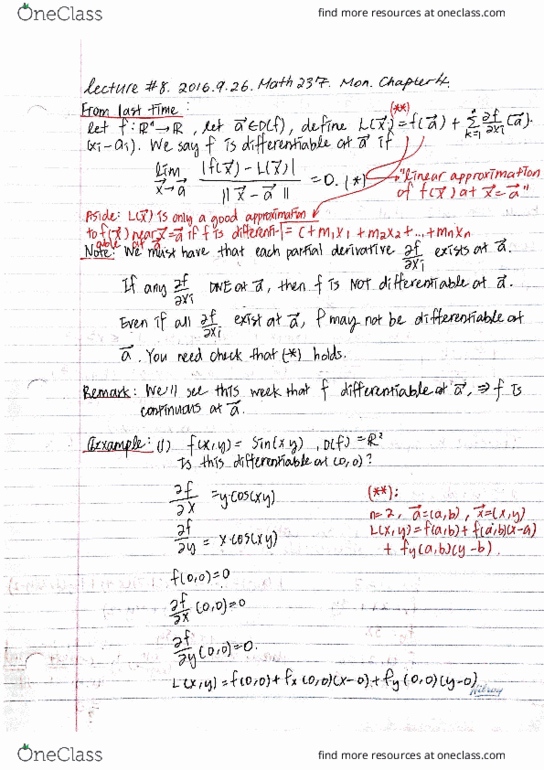 OneClass
find more resources at oneclass.com
lecture #8. 2016.9.26. Math 237. Mon. Chapter 4.
From last time:
(**)
let f: ℝⁿ→ℝ, let a⃗∈D(f), define L(x⃗) = f(a⃗) + Σⁿₖ₌₁ ∂f/∂xᵢ (a⃗).
(xᵢ - aᵢ). We say f is differentiable at a⃗ if
lim x⃗→a⃗ |f(x⃗) - L(x⃗)| / ||x⃗ - a⃗|| = 0. (*)
"linear approximation
of f(x⃗) at x⃗=a⃗"
Aside: L(x⃗) is only a good approximation
to f(x⃗) near x⃗=a⃗ if f is differenti-
able at a⃗
= C+m₁x₁ + m₂x₂ + ... + mₙxₙ
Note: We must have that each partial derivative ∂f/∂xᵢ exists at a⃗.
If any ∂f/∂xᵢ DNE at a⃗, then f is NOT differentiable at a⃗.
Even if all ∂f/∂xᵢ exist at a⃗, f may not be differentiable at
a⃗. You need check that (*) holds.
Remark: We'll see this week that f differentiable at a⃗, ⇒ f is
continuous at a⃗.
Example: (1) f(x,y) = sin(xy), D(f) = ℝ²
Is this differentiable at (0,0)?
∂f/∂x = y·cos(xy)
∂f/∂y = x·cos(xy)
(**):
n=2, a⃗=(a,b), x⃗=(x,y)
L(x,y) = f(a,b) + f(a,b)(x-a)
+ fy(a,b)(y-b).
f(0,0)=0
∂f/∂x (0,0)=0
∂f/∂y (0,0)=0.
L(x,y) = f(0,0) + fx(0,0)(x-0) + fy(0,0)(y-0)
Hilroy
OneClass
find more resources at oneclass.com